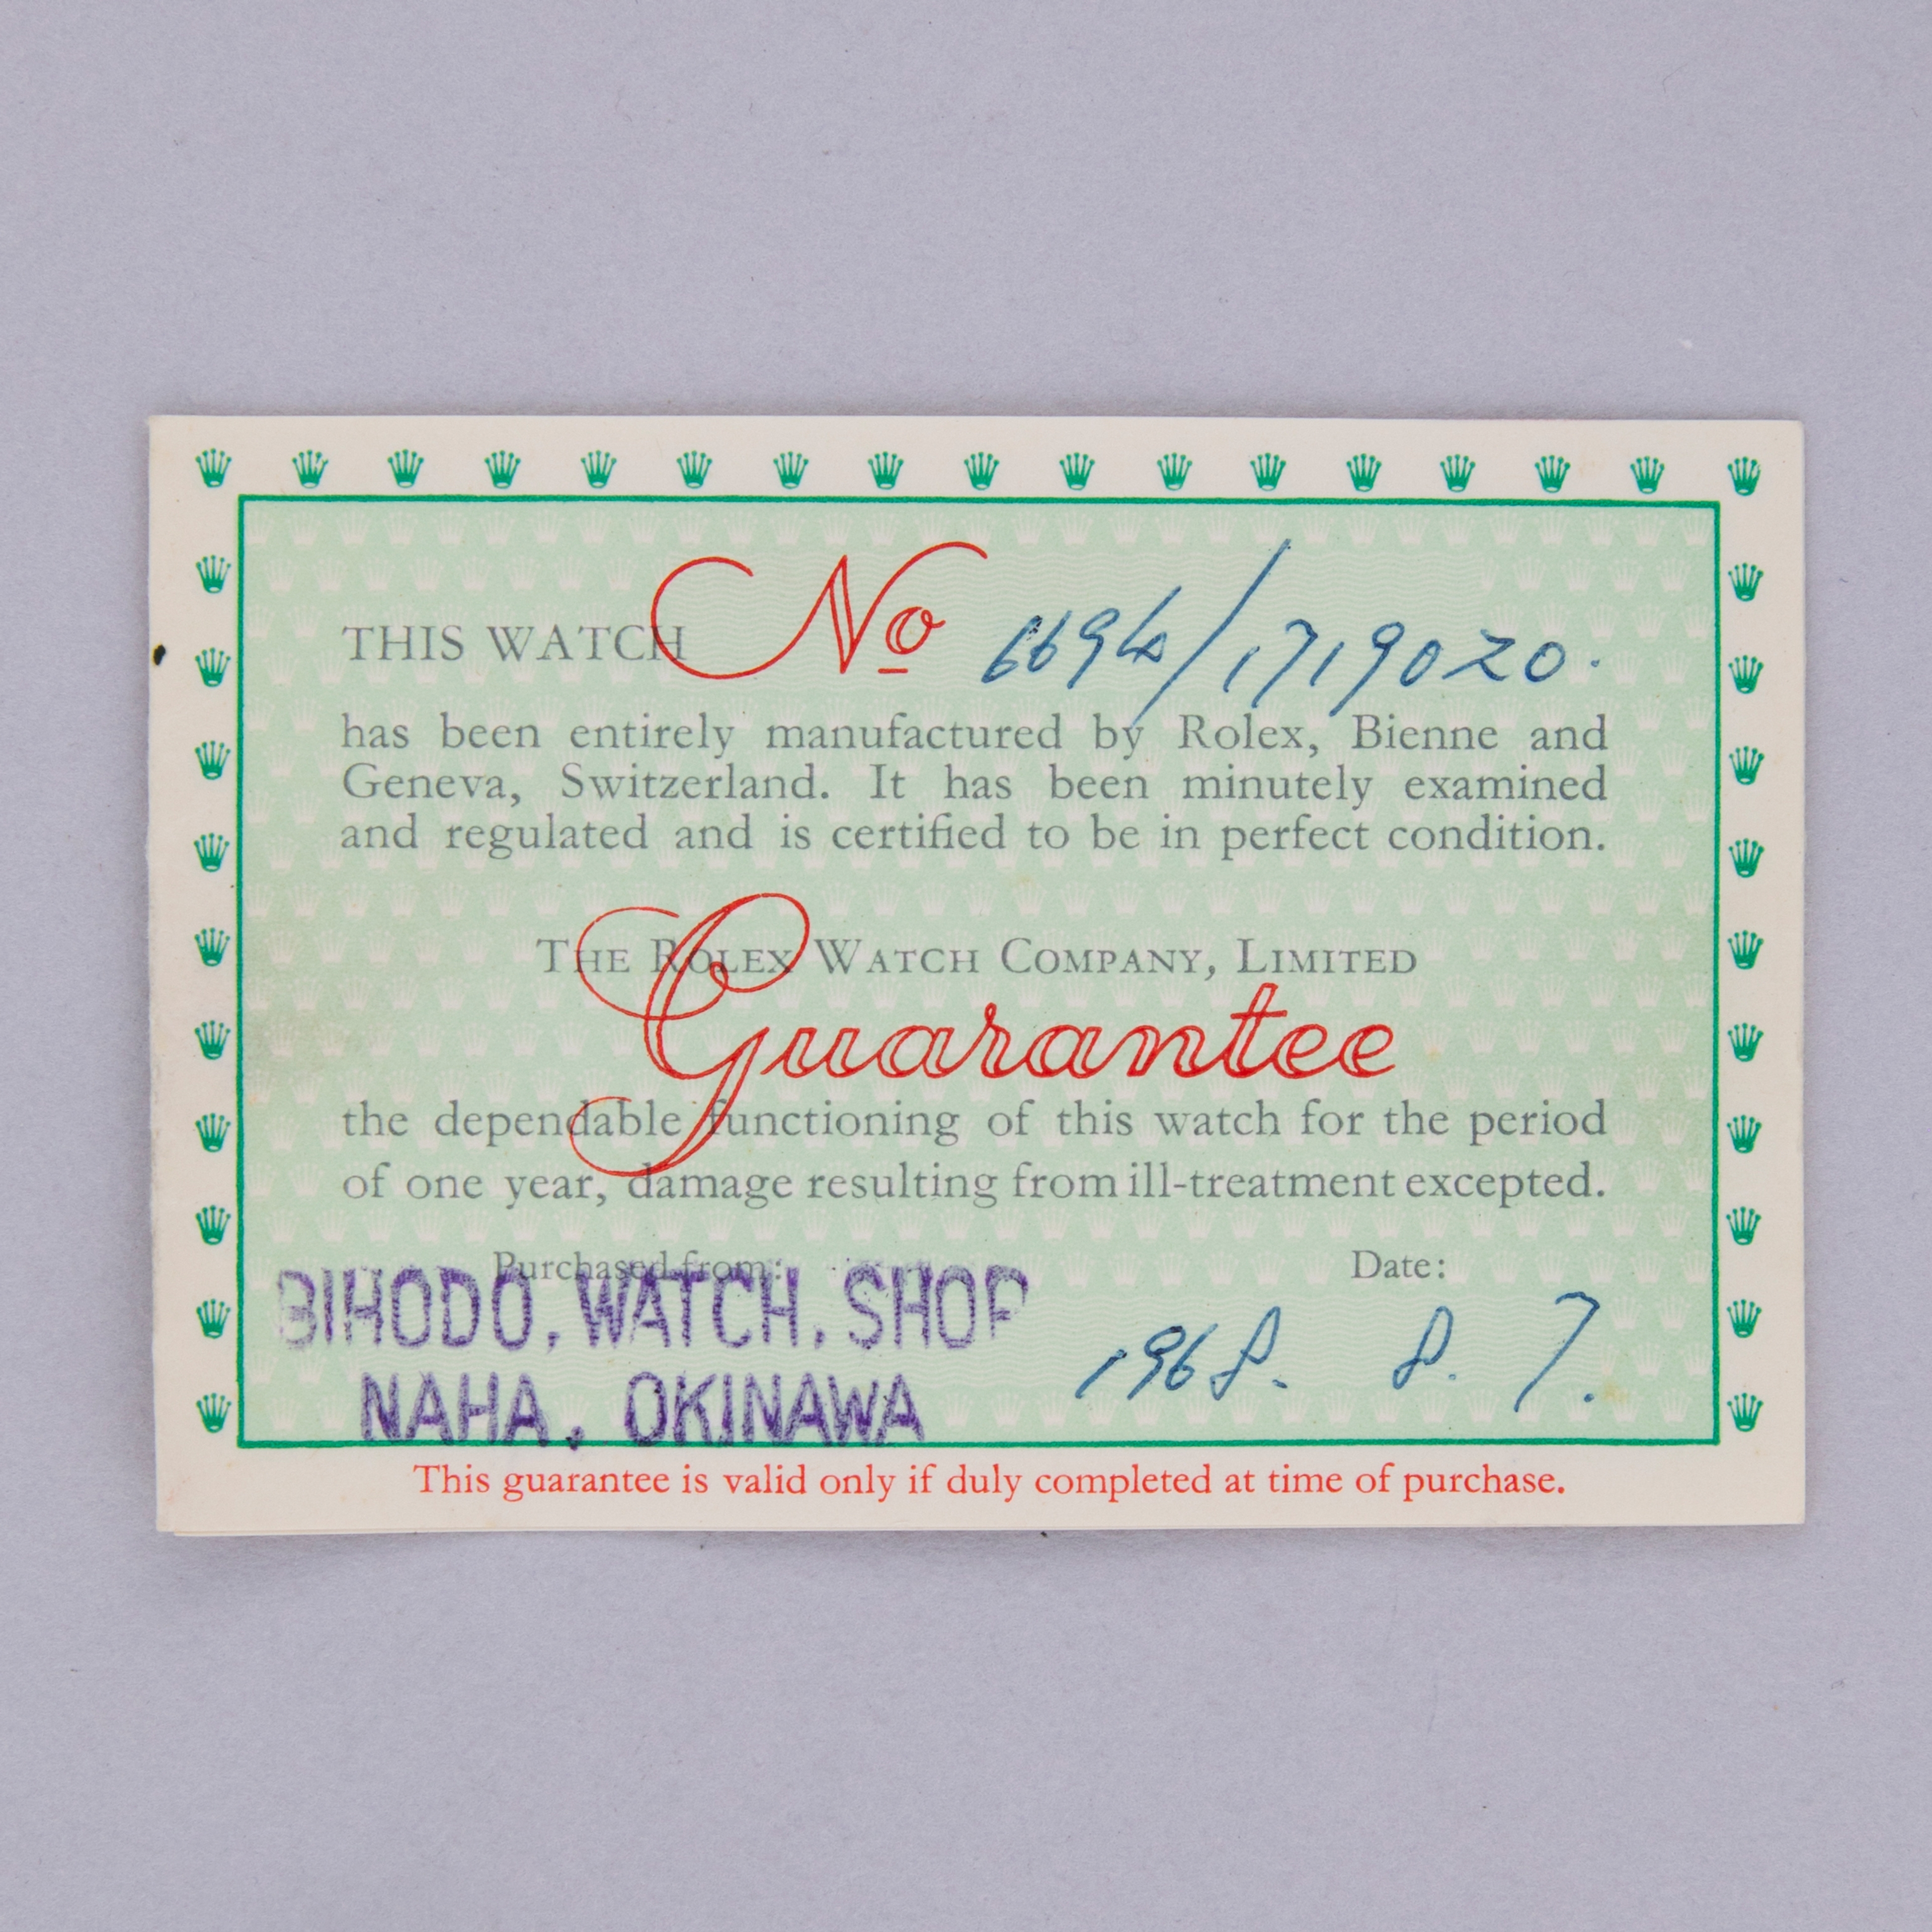 THIS WATCH No 6694/1719020.
has been entirely manufactured by Rolex, Bienne and
Geneva, Switzerland. It has been minutely examined
and regulated and is certified to be in perfect condition.
THE ROLEX WATCH COMPANY, LIMITED
Guarantee
the dependable functioning of this watch for the period
of one year, damage resulting from ill-treatment excepted.
Purchased from: Date:
BIHODO. WATCH. SHOP
NAHA. OKINAWA
1968. 8. 7.
This guarantee is valid only if duly completed at time of purchase.